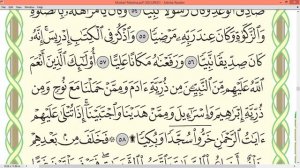 Mushaf Madina.pdf (SECURED) - Adobe Reader
صَادِقَ ٱلْوَعْدِ وَكَانَ رَسُولًا نَّبِيًّا ٥٤ وَكَانَ يَأْمُرُ أَهْلَهُۥ بِٱلصَّلَوٰةِ
وَٱلزَّكَوٰةِ وَكَانَ عِندَ رَبِّهِۦ مَرْضِيًّا ٥٥ وَٱذْكُرْ فِى ٱلْكِتَٰبِ إِدْرِيسَ إِنَّهُۥ
كَانَ صِدِّيقًا نَّبِيًّا ٥٦ وَرَفَعْنَٰهُ مَكَانًا عَلِيًّا ٥٧ أُو۟لَٰٓئِكَ ٱلَّذِينَ أَنْعَمَ
ٱللَّهُ عَلَيْهِم مِّنَ ٱلنَّبِيِّـۧنَ مِن ذُرِّيَّةِ ءَادَمَ وَمِمَّنْ حَمَلْنَا مَعَ نُوحٍ وَمِن
ذُرِّيَّةِ إِبْرَٰهِيمَ وَإِسْرَٰٓءِيلَ وَمِمَّنْ هَدَيْنَا وَٱجْتَبَيْنَآ إِذَا تُتْلَىٰ عَلَيْهِمْ
ءَايَٰتُ ٱلرَّحْمَٰنِ خَرُّوا۟ سُجَّدًا وَبُكِيًّا ۩ ٥٨ ۞ فَخَلَفَ مِنۢ بَعْدِهِمْ